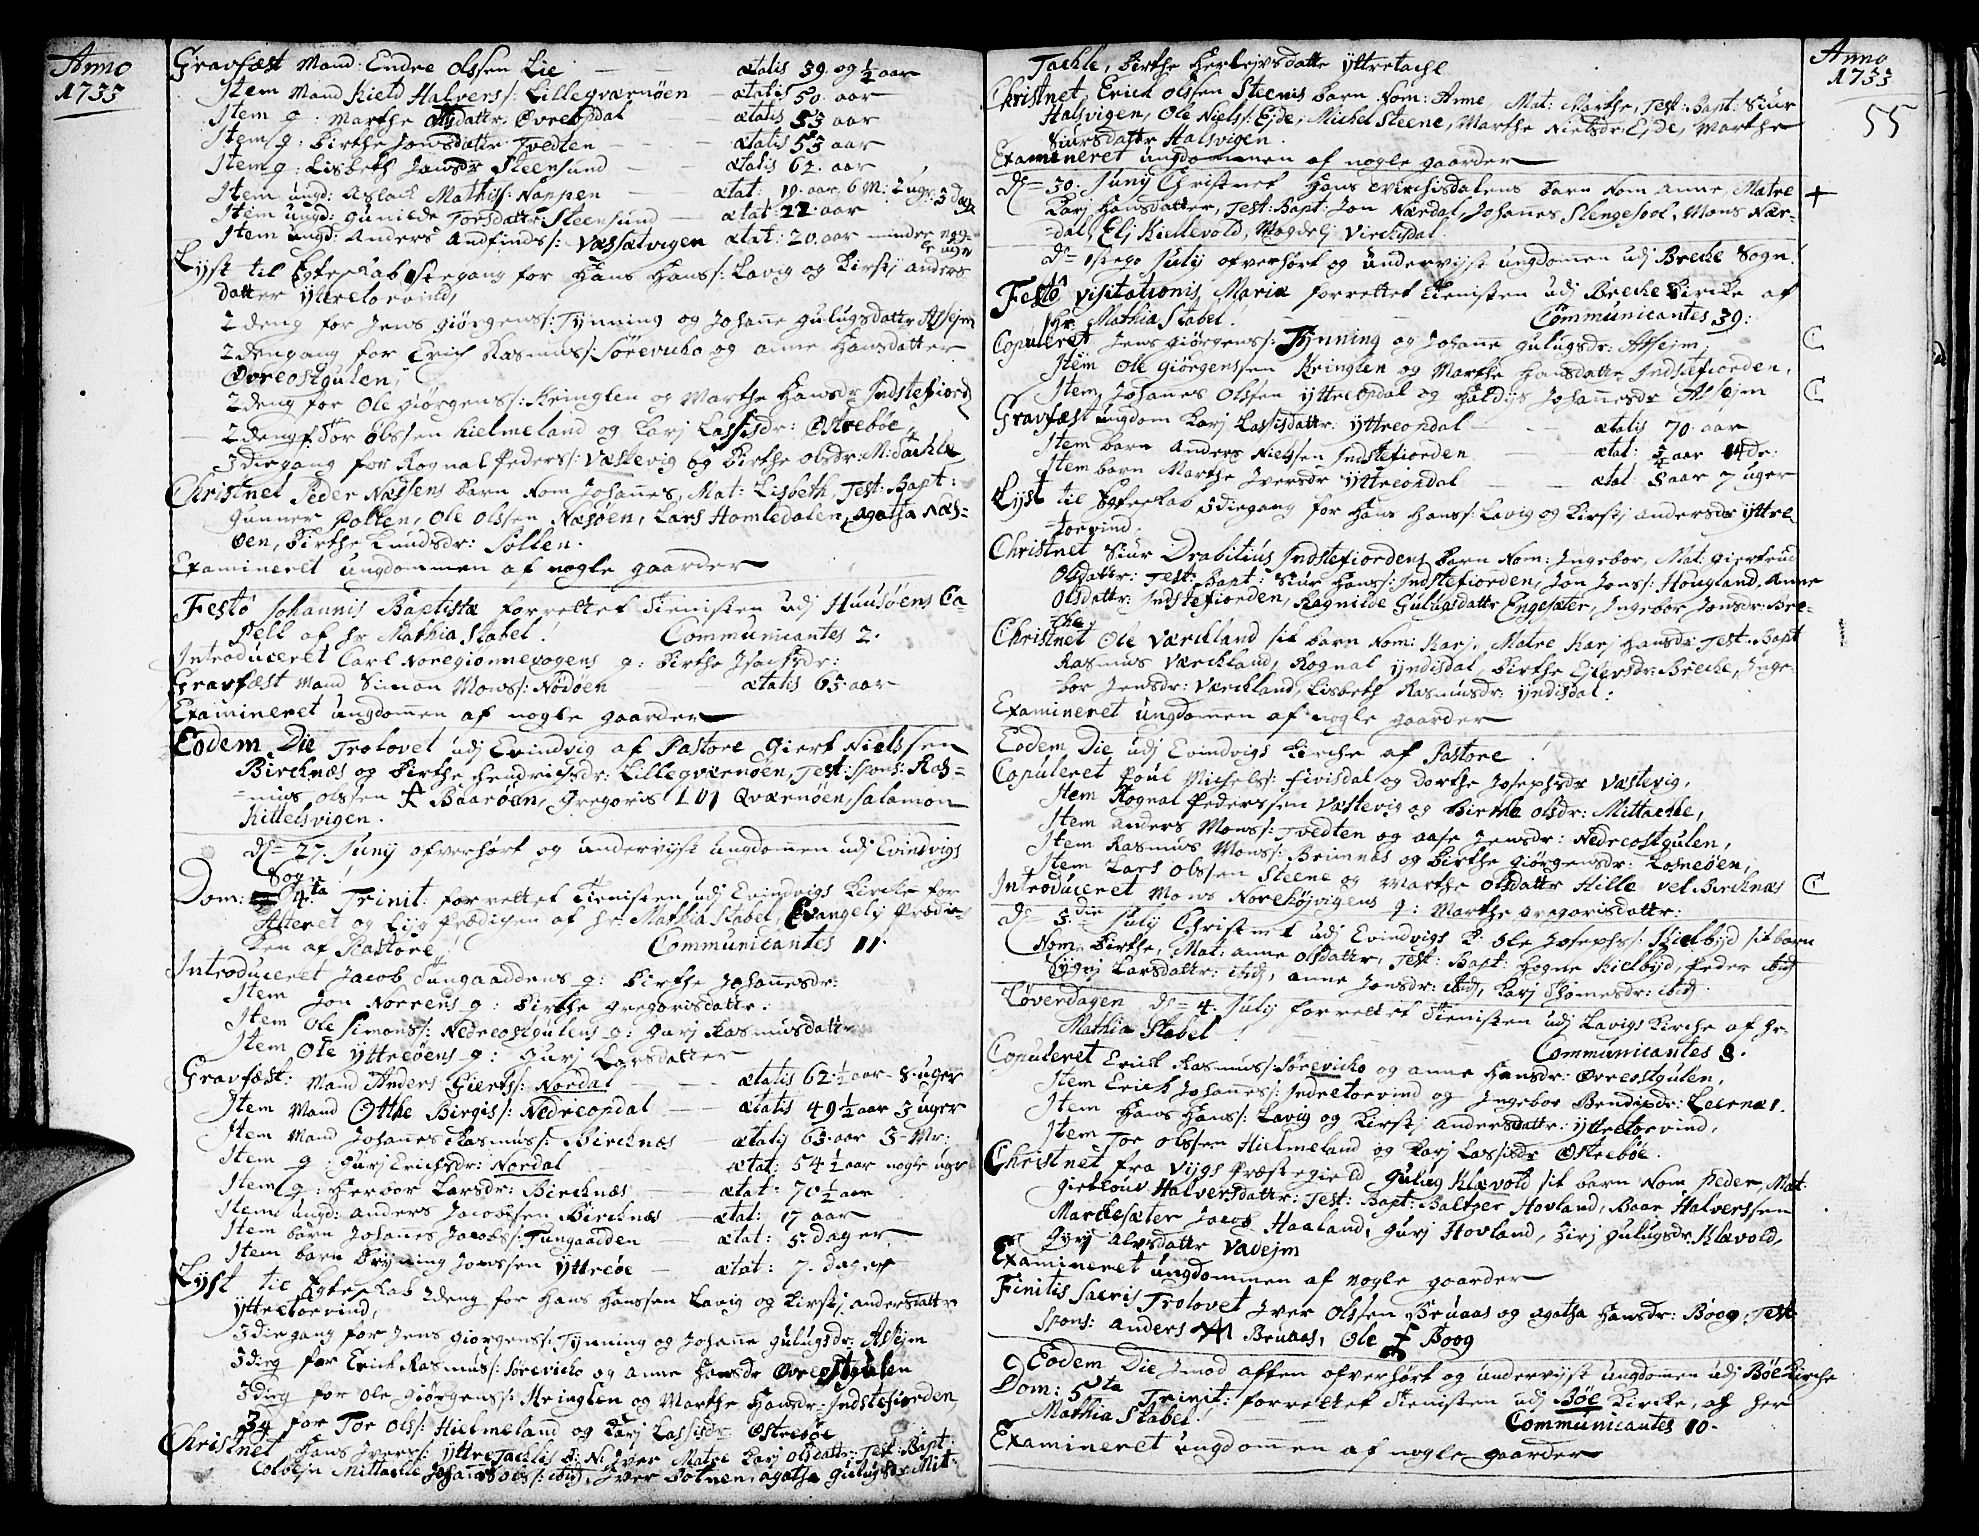 Anno
1733
Gravfæst Mand: Endre Olssen Lie — ætatis 39. og ½ aar
Item Mand Kield Halvers/: Lillegværnöen — ætatis 50. aar
Item q: Marthe Olsdattr: Øvreopdal — ætatis 53 aar
Item q: Birthe Jonsdattr: Tvedten — ætatis 53 aar
Item q: Lisbeth Jonsdr Steensund — ætatis 62. aar
Item ungd: Aslach Mathis/: Nappen — ætat: 19. aar 6 M: 2 ugr: 3 dage
Item ungd: Gunilde Torsdattr: Steensund — ætat 22. aar
Item ungd: Anders Andfinds/: Væssetvigen ætat: 20. aar minder nog-
le uger
Lyst til Egteskab 1ste gang for Hans Hans/: Lavig og Kirstj Anders
datter Yttretorvind,
2 deng for Jens Giörgens/: Tynning og Johanne Gulugsdattr Assejm
2 dengang for Erich Rasmus/: Sörevicho og Anne Hansdatter
Øvreostgulen,
2 deng for Ole Giörgens/: Kringlen og Marthe Hansdr Indstefiord
2 deng f: Tor Olssen Hielmeland og Karj Lassisdr: Østreböe,
3 diegang for Rognal Peders/: Vastevig og Birthe Olsdr: M: Tachle
Christnet Peder Næssens barn Nom Johannes, Mat: Lisbeth, Test: Bapt:
Gunner Pollen, Ole Olssen Næsöen, Lars Homledalen, Agatha Næs-
öen, Birthe Knudsdr: Sollen.
Examineret ungdommen af nogle gaarder
Festo Johannis Baptistæ forrettet Tienisten udj Huusöens Ca-
pell af hr Mathia Stabel! Communicantes 2.
Introduceret Carl Noregiönnevogens q: Birthe Isachsdr:
Gravfæst Mand Simon Mons/: Nödöen — ætatis 65. aar
Examineret ungdommen af nogle gaarder
Eodem Die Trolovet udj Evindvig af Pastore Giert Nielssen
Birchnæs og Birthe Hendrichsdr: Lillegværnöen, Test: Spons: Ras-
mus Olssen Baaröen, Gregoris Qværnöen, Salamon
Killesvigen.
d= 27. Junij ofverhört og undervijst ungdommen udj Evindvigs
Sogn!
Dom: 4ta Trinit: forrettet Tienisten udj Evindvigs Kircke for
Alteret og Lijg Prædigen af hr Mathia Stabel, Evangelij Prædi-
ken af Pastore! Communicantes 11.
Introduceret Jacob Tungaaddens q: Birthe Johannesdr:
Item Jon Norrens q: Birthe Gregorisdattr:
Item Ole Simons/: Nedreostgulens q: Gurj Rasmusdattr
Item Ole Yttreöens q: Gurj Larsdatter
Gravfæst: Mand Anders Gierts/: Nordal — ætatis 62½ aar 8 uger
Item Mand Otthe Birgis/: Nedreopdal — ætatis 49½ aar 3 uger
Item Mand Johannes Rasmus/: Birchnæs — ætatis 63. aar 3 Mr:
Item q: Gurj Erichsdr: Nordal — ætat: 54½ aar nogle uger
Item q: Herbor Larsdr: Birchnæs — ætat: 70½ aar
Item ungd: Anders Jacobssen Birchnæs — ætat: 17 aar
Item barn Johannes Jacobs/: Tungaadden — ætat: 5. dager
Item barn Brynning Jonssen Yttreöe — ætat: 7. dager
Lyst til Egteskab 2 deng for Hans Hanssen Lavig og Kirstj Andersdattr
Yttretorvind,
3 diegang for Jens Giörgens/: Tynning og Johanne Gulugsdr: Assejm
3 dieg for Erich Rasmus/: Sörevicho og Anne Hansdr Øvreostgulen
3 dieg for Ole Giörgens/: Kringlen og Marthe Hansdr: Indstefiorden,
3 g for Tor Ols/: Hielmeland og Karj Lassisdr: Østreböe
Christnet Hans Ivers/: Yttretachles B: N: Iver Matre Karj Olsdattr: Test: Bapt:
Colbejn Mittachle Johannes Ols/: ibid, Iver Botnen, Agatha Gulugsdr Mit-
Tachle, Birthe Herlejvsdatte Yttretachl
Anno
1733
55
Christnet Erick Olssen Steenis barn Nom: Anne, Mat: Marthe, Test: Bapt: Siur
Halsvigen, Ole Niels/: Ejde, Michel Steene, Marthe Nielsdr: Ejde, Marthe
Siursdattr Halsvigen.
Examineret ungdommen af nogle gaarder
d= 30. Junij Christnet Hans Virchisdalens barn Nom Anne, Matre
Karj Hansdatter, Test: Bapt: Jon Nærdal, Johannes Slengesool, Mons Nær-
dal, Elj Kiellevold, Magdelj Virchisdal.
d= 1 Julij ofverhört og undervijst ungdommen udj Breche Sogn.
Festo Visitationis Mariæ forrettet Tienisten udj Breche Kirche af
Hr: Mathia Stabel! Communicantes 39:
Copuleret Jens Giörgens/: Tynning og Johanne Gulugsdr: Assejm,
Item Ole Giörgenssen Kringlen og Marthe Hansdattr Indstefiorden,
Item, Johannes Olssen Yttreopdal og Haldijs Johannesdr Assejm
Gravfæst ungdom Karj Lassisdattr: Yttreopdal — ætatis 70. aar
Item barn Anders Nielssen Indstefiorden — ætat: ¾ aar 14 dr:
Item barn Marthe Iversdr Yttreopdal — ætat 8 aar 7 uger
Lyst til Egteskab 3 diegang for Hans Hans/: Lavig og Kirstj Andersdr Yttre-
torvind.
Christnet Siur Drabitius Indstefiordens barn Nom: Ingebor, Mat: Giertrud
Olsdattr: Test: Bapt: Siur Hans/: Indstefiorden, Jon Jons/: Hougland, Anne
Olsdattr: Indstefiorden, Ragnilde Gulugsdattr Engesæter, Ingebor Jonsdr: Bre-
che.
Christnet Ole Værckland sit barn Nom: Karj, Matre Karj Hansdr Test: Bapt
Rasmus Værckland, Rognal Yndisdal, Birthe Ejlersdr: Breche, Inge-
bor Jensdr: Værckland, Lisbeth Rasmusdr: Yndisdal:
Examineret ungdommen af nogle gaarder
Eodem Die udj Evindvigs Kirche af Pastore!
Copuleret Poul Michels/: Fivisdal og Dorthe Josephsdr Vastevig,
Item Rognal Pederssen Vastevig og Birthe Olsdr: Mittachle,
Item Anders Mons/: Tvedten og Aase Jensdr: Nedreostgulen,
Item Rasmus Mons/: Brimnæs og Birthe Giörgensdr: Losneöen,
Item Lars Olssen Steene og Marthe Olsdattr Hille vel: Birchnæs
Introduceret Mons Norehöjvigens q: Marthe Gregorisdattr:
d= 3. die Julij Christnet udj Evindvigs K: Ole Josephs/: Kielbijd sit barn
Nom: Birthe, Mat: Anne Olsdattr, Test: Bapt: Hogne Kielbijd, Peder ibid
Sygnj Larsdattr: ibid, Anne Jonsdr: ibid, Karj Thomesdr: ibid.
Löverdagen d= 4. Julij forrettet Tienisten udj Lavigs Kirche af hr
Mathia Stabel! Communicantes 8.
Copuleret Erick Rasmus/: Sörevicho og Anne Hansdr: Øvreostgulen,
Item Erich Johannes/: Indretorvind og Ingebor Bendixdr: Leernæs.
Item Hans Hans/: Lavig og Kirstj Andersdattr: Yttretorvind,
Item Tor Olssen Hielmeland og Karj Lassisdr Østreböe.
Christnet fra Vijgs Præstegield Gulug Klævold sit barn Nom Peder, Mat:
Giertouv Halversdattr: Test: Bapt: Baltzer Hovland, Baar Halverssen
Marchesæter Jacob Haaland, Gurj Hovland, Zirj Gulugsdr Klævold,
Gyrj Alvsdattr Vadejm
Examineret ungdommen af nogle gaarder
Finitis Sacris Trolovet Iver Olssen Bruaas og Agatha Hansdr: Boog, Test
Spons: Anders Bruaas, Ole Boog
Eodem Die imod afften ofverhört og undervijst ungdommen udj Böe Kirche
Dom: 5ta Trinit: forrettet Tienisten udj Böe Kircke, af her
Mathia Stabel! Communicantes 10.
Examineret ungdommen af nogle gaarder